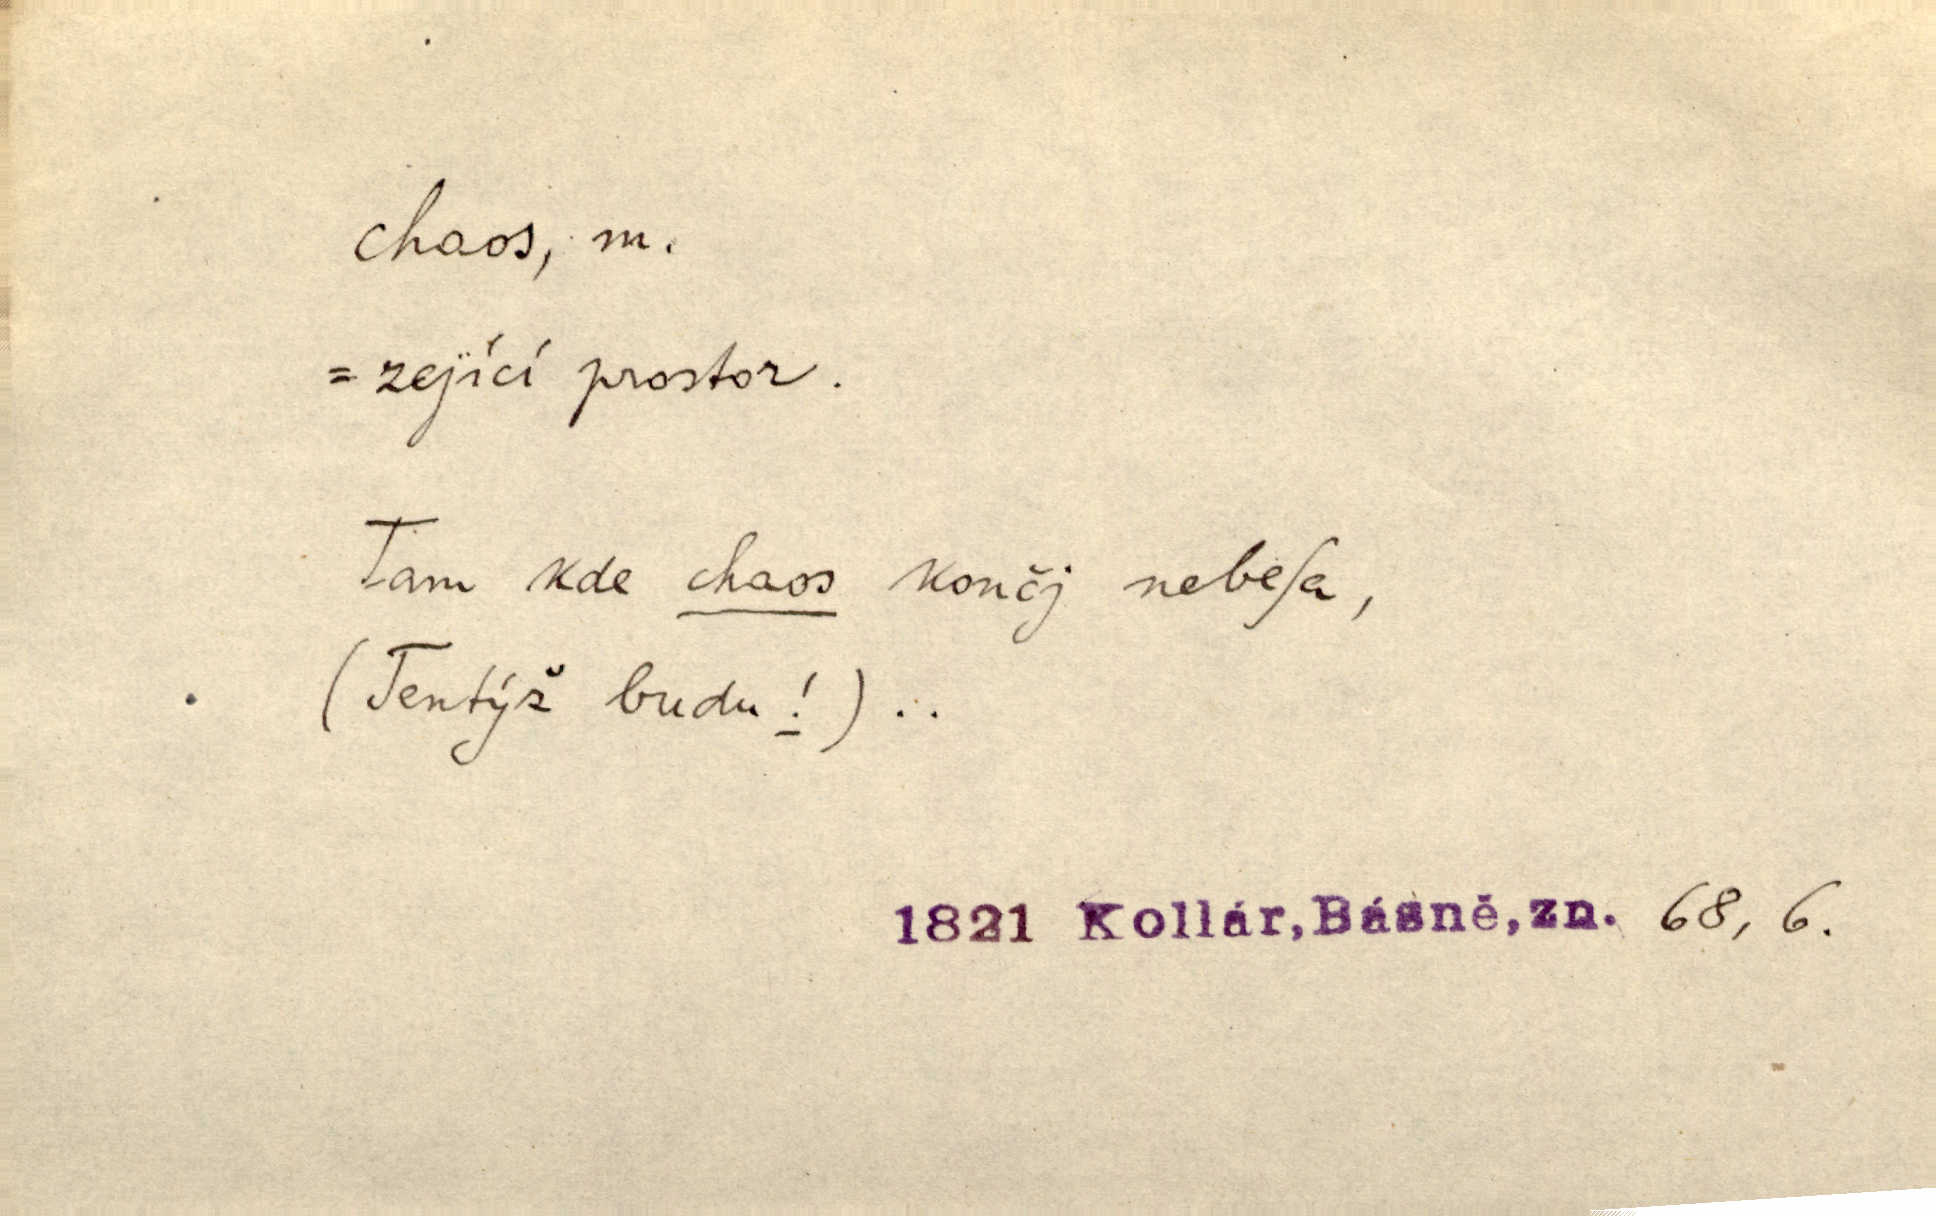 chaos, m.
= zející prostor.
Tam kde chaos končj nebeſa,
(Tentýž budu!) ..
1821 Kollár,Básně,zn. 68, 6.